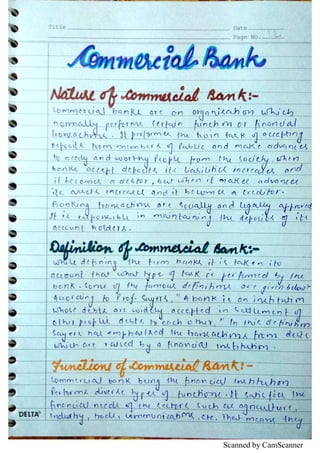 Title
Date
Page No.
Commercial Bank
Nature of Commercial Bank:-
Commercial banks are an organisation which
normally performs certain finctions or financial
transactions. It performes the twin task of accepting
deposits from members of Public and make advances
to needy and worthy people from the society. When
banks accept deposits its liabilities increases and
it becomes a debtor, but when it makes advances
its assets increases and it becomes a creditor.
Banking transactions are socially and legally approved
It is responsible in maintaining the deposits of its
account holders.
Definition of Commercial Bank:-
while defining the term banks it is taken into
account that what type of task is performed by the
bank. Some of the famous definitions are given below:
According to Prof. Sayers, "A bank is an institution
whose debts are widely accepted in settlement of
other peoples debts to each other." In this definition
Sayers has emphasised the transactions from debts
which are raised by a financial institution.
Functions of Commercial Bank:-
Commercial bank being the financial institution
Performs diverse types of functions. It satisfies the
financial needs of the sectors such as agriculture,
industry, trade, communications, etc. That means they
DELTA
Scanned by CamScanner